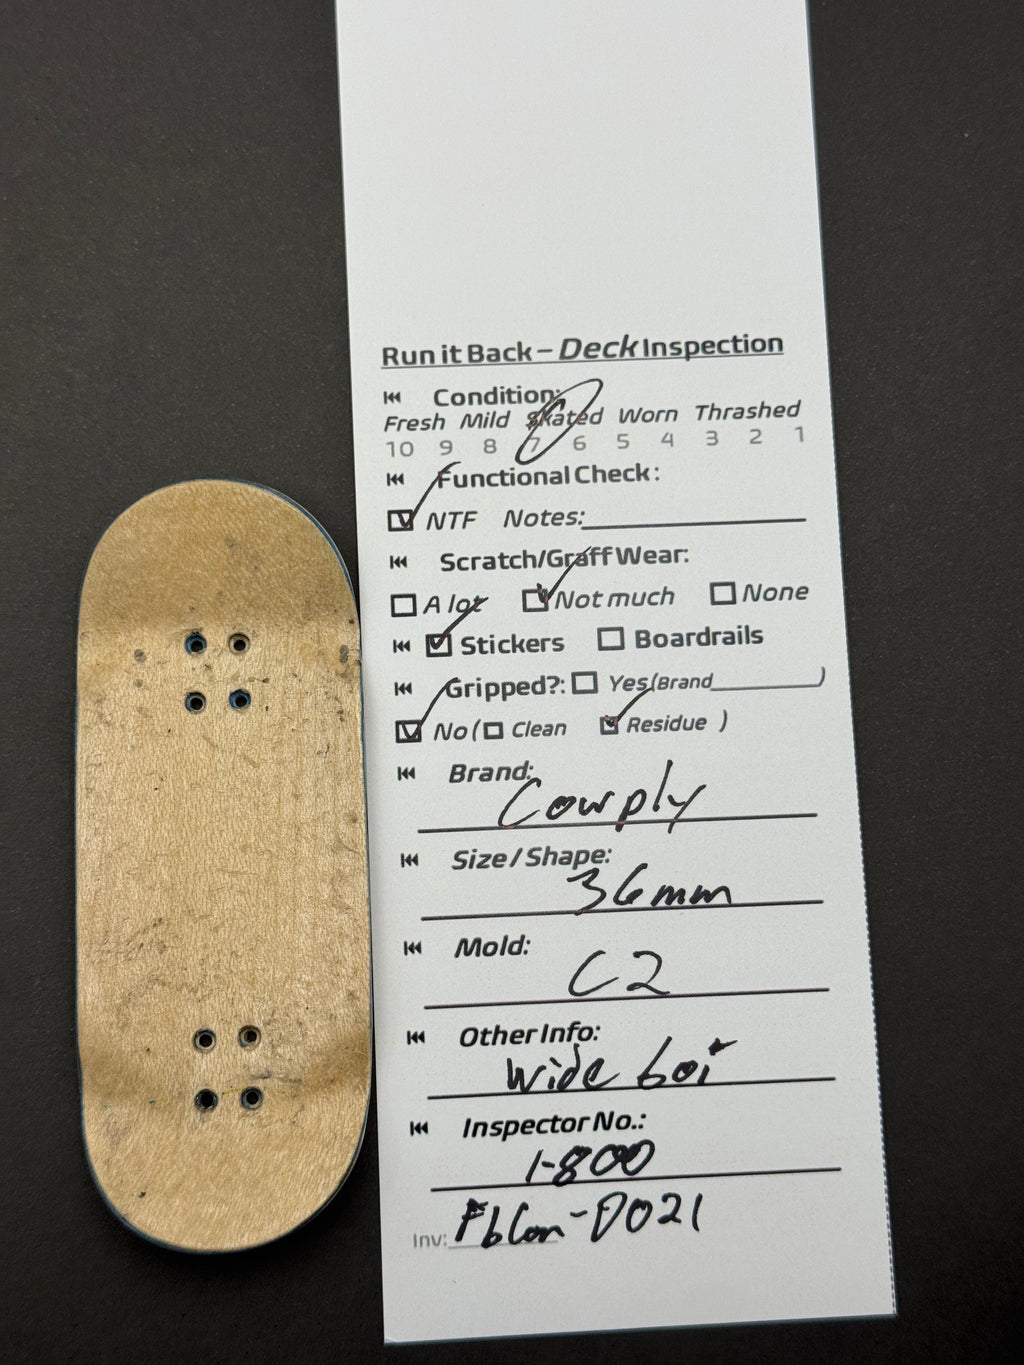 Run it Back – Deck Inspection
Condition:
Fresh Mild Skated Worn Thrashed
10 9 8 7 6 5 4 3 2 1
Functional Check:
NTF Notes:
Scratch/Graff Wear:
A lot Not much None
Stickers Boardrails
Gripped?: Yes (Brand )
No ( Clean Residue )
Brand:
Cowply
Size / Shape:
36mm
Mold:
C2
Other Info:
Wide boi
Inspector No.:
1-800
Inv: FbCon-D021